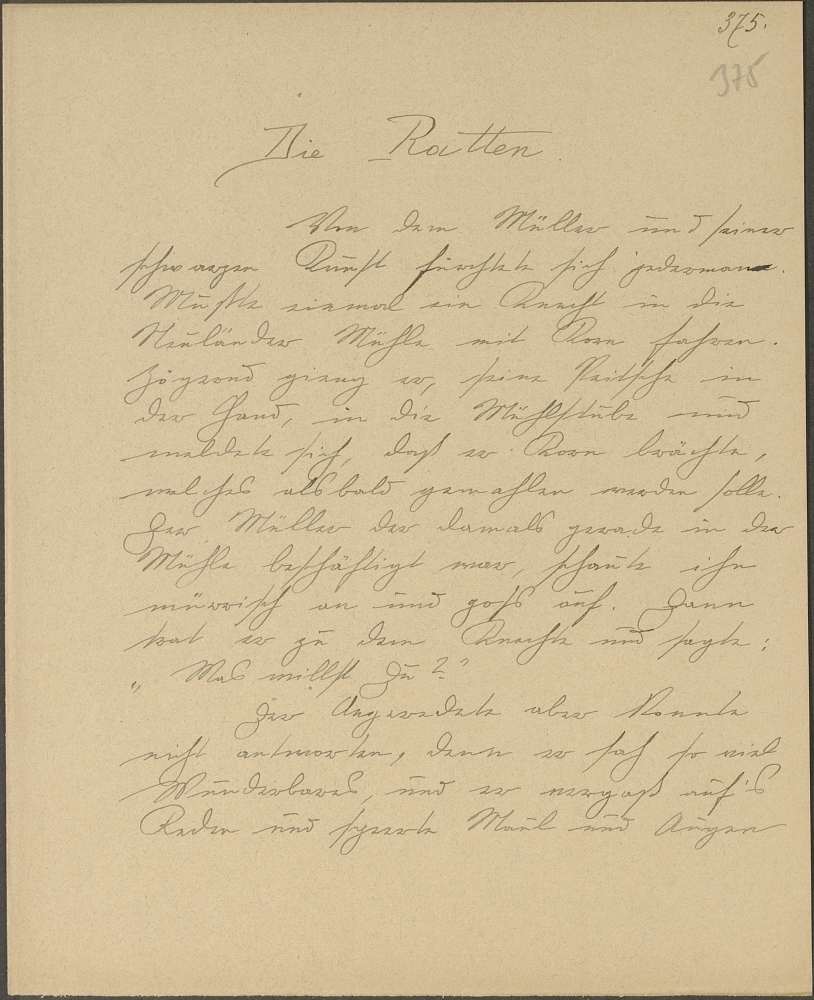 375.
375
Die Ratten.
Von dem Müller und seiner
schwarzen Kunst fürchtete sich jedermann.
Mußte einmal ein Knecht in die
Neuländer Mühle mit Korn fahren.
Zögernd gieng er, seine Peitsche in
der Hand, in die Mühlstube und
meldete sich, daß er Korn brächte,
welches alsbald gemahlen werden solle.
Der Müller der damals gerade in der
Mühle beschäftigt war, schaute ihn
mürrisch an und goß auf. Dann
trat er zu dem Knechte und sagte:
„Was willst Du?"
Der Angeredete aber konnte
nicht antworten, denn er sah so viel
Wunderbares, und er vergaß auf's
Reden und sperrte Maul und Augen